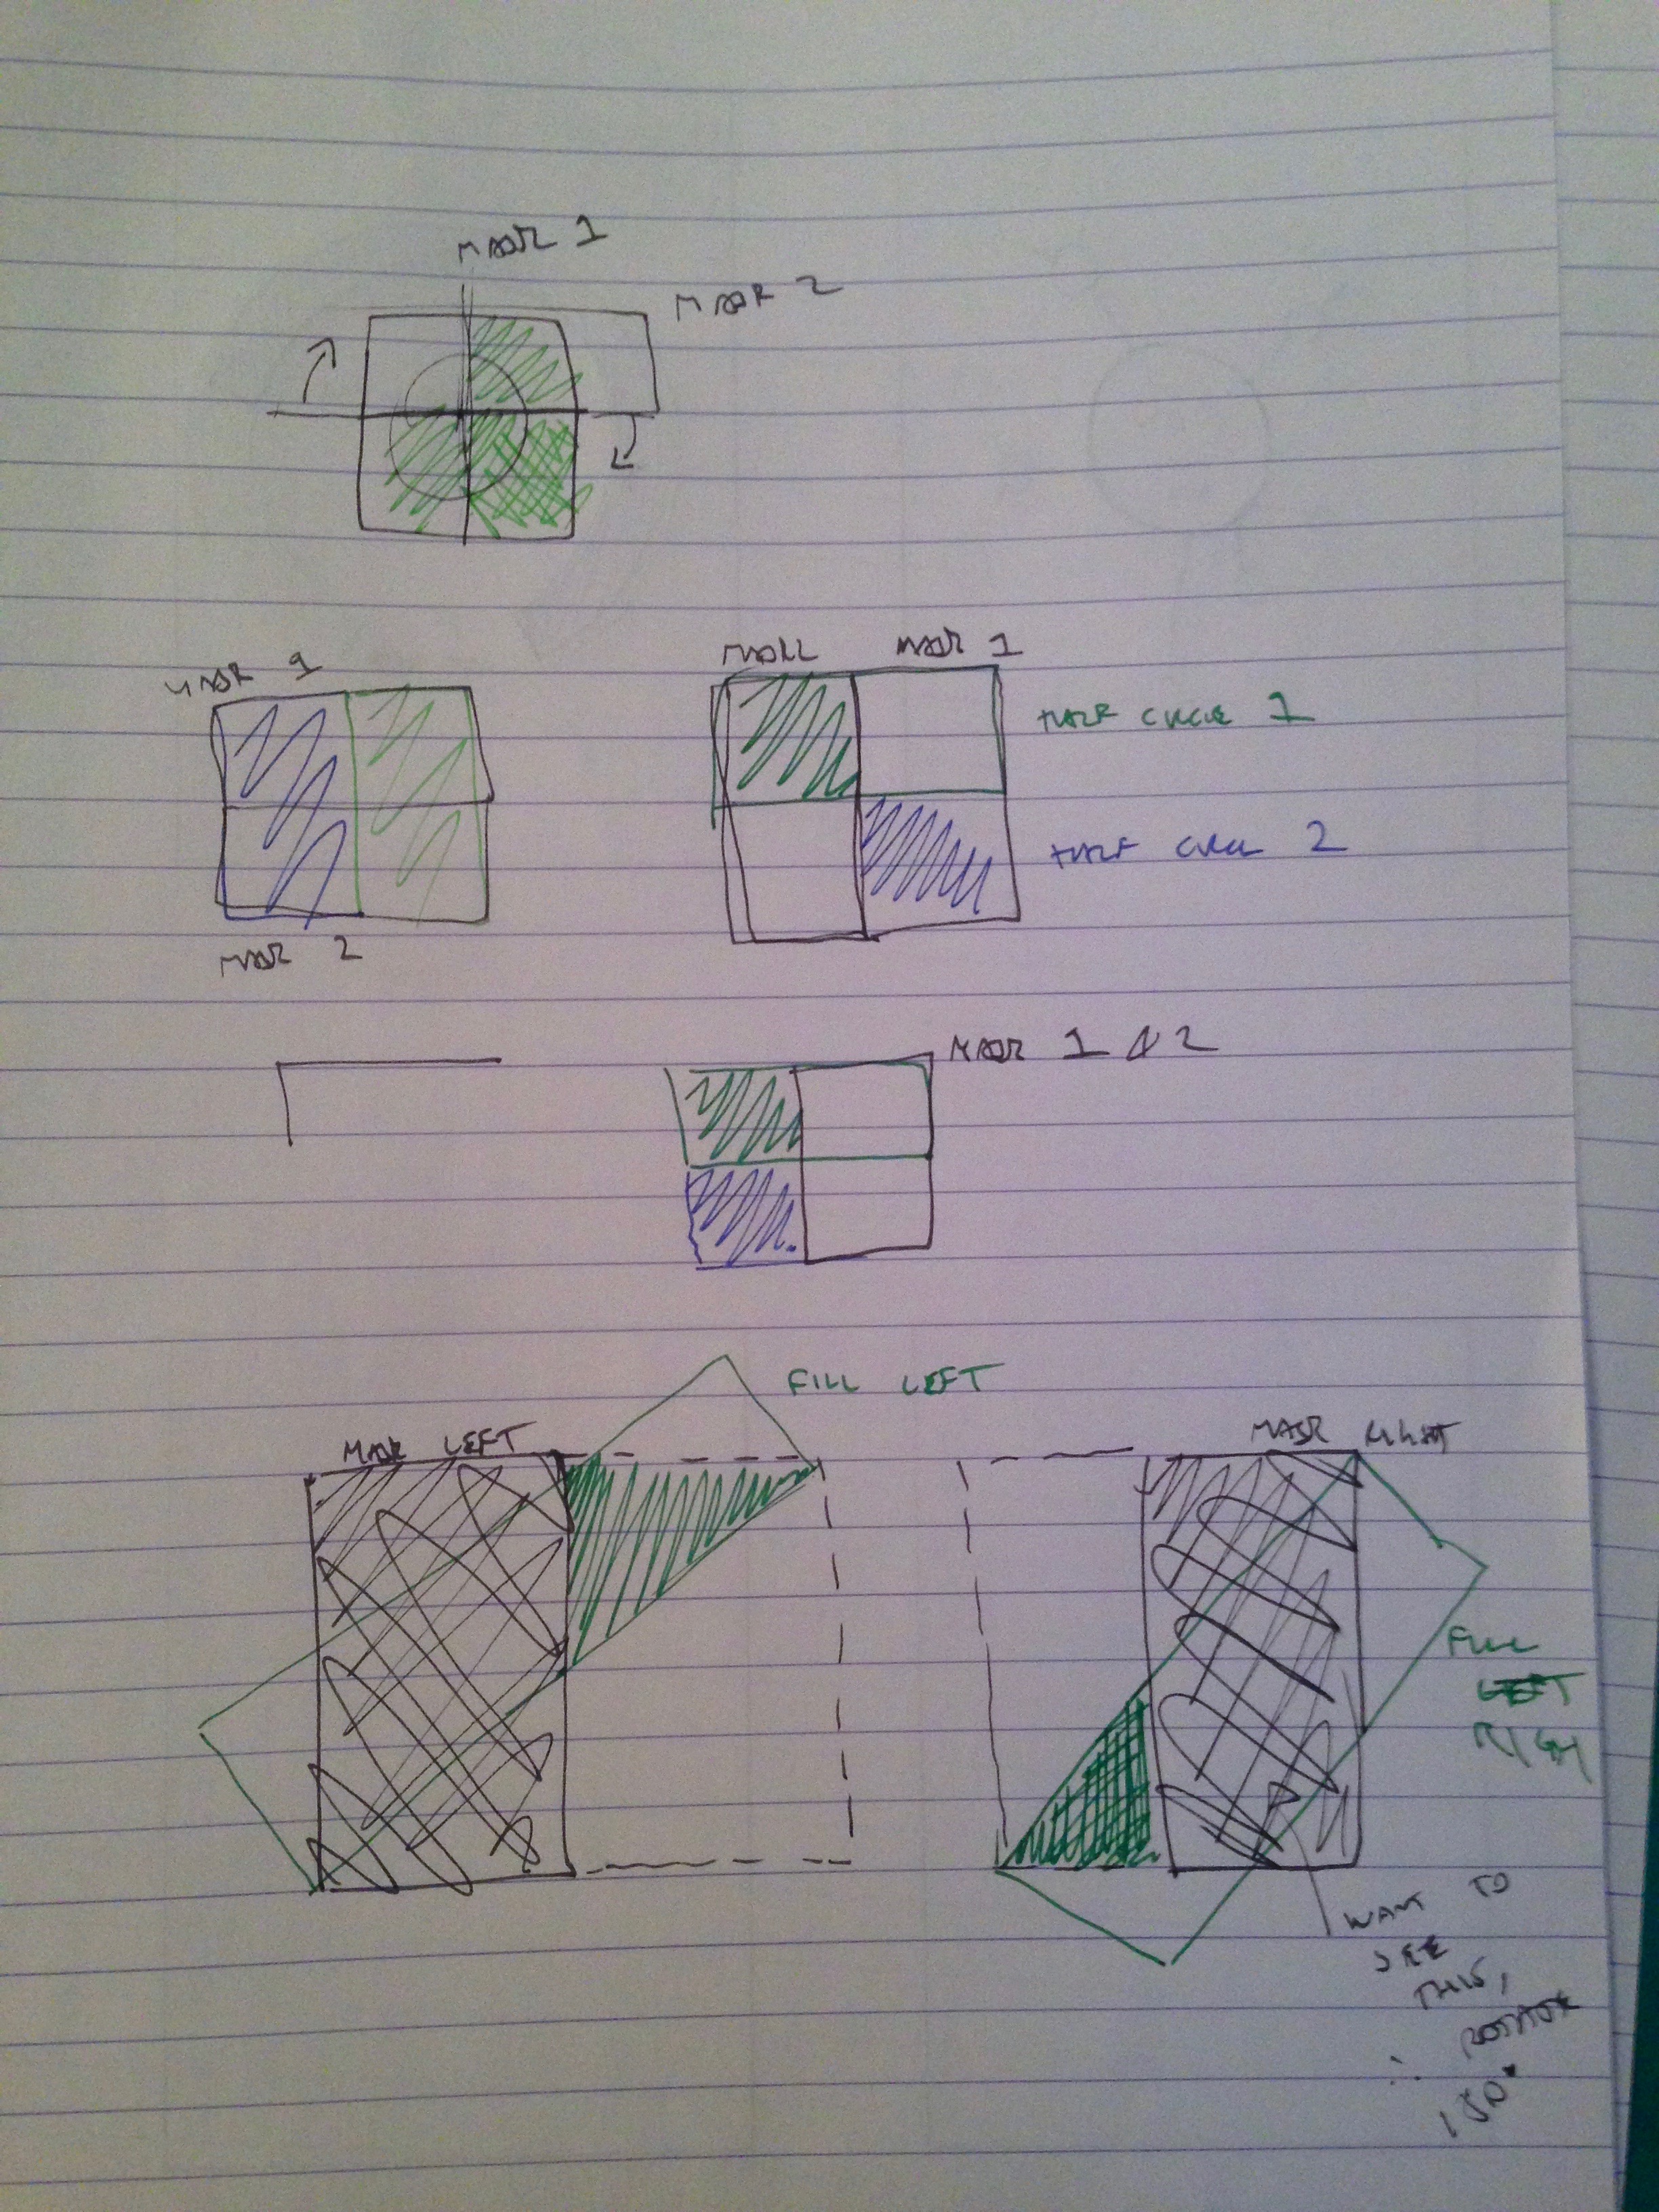 MASK 1
MASK 2
MASK 1
MASK 1
HALF CIRCLE 1
HALF CIRCLE 2
MASK 2
MASK 1 & 2
FILL LEFT
MASK LEFT
MASK RIGHT
FILL
LEFT
RIGH
WANT TO
SEE
THIS,
∴ ROTATE
180°